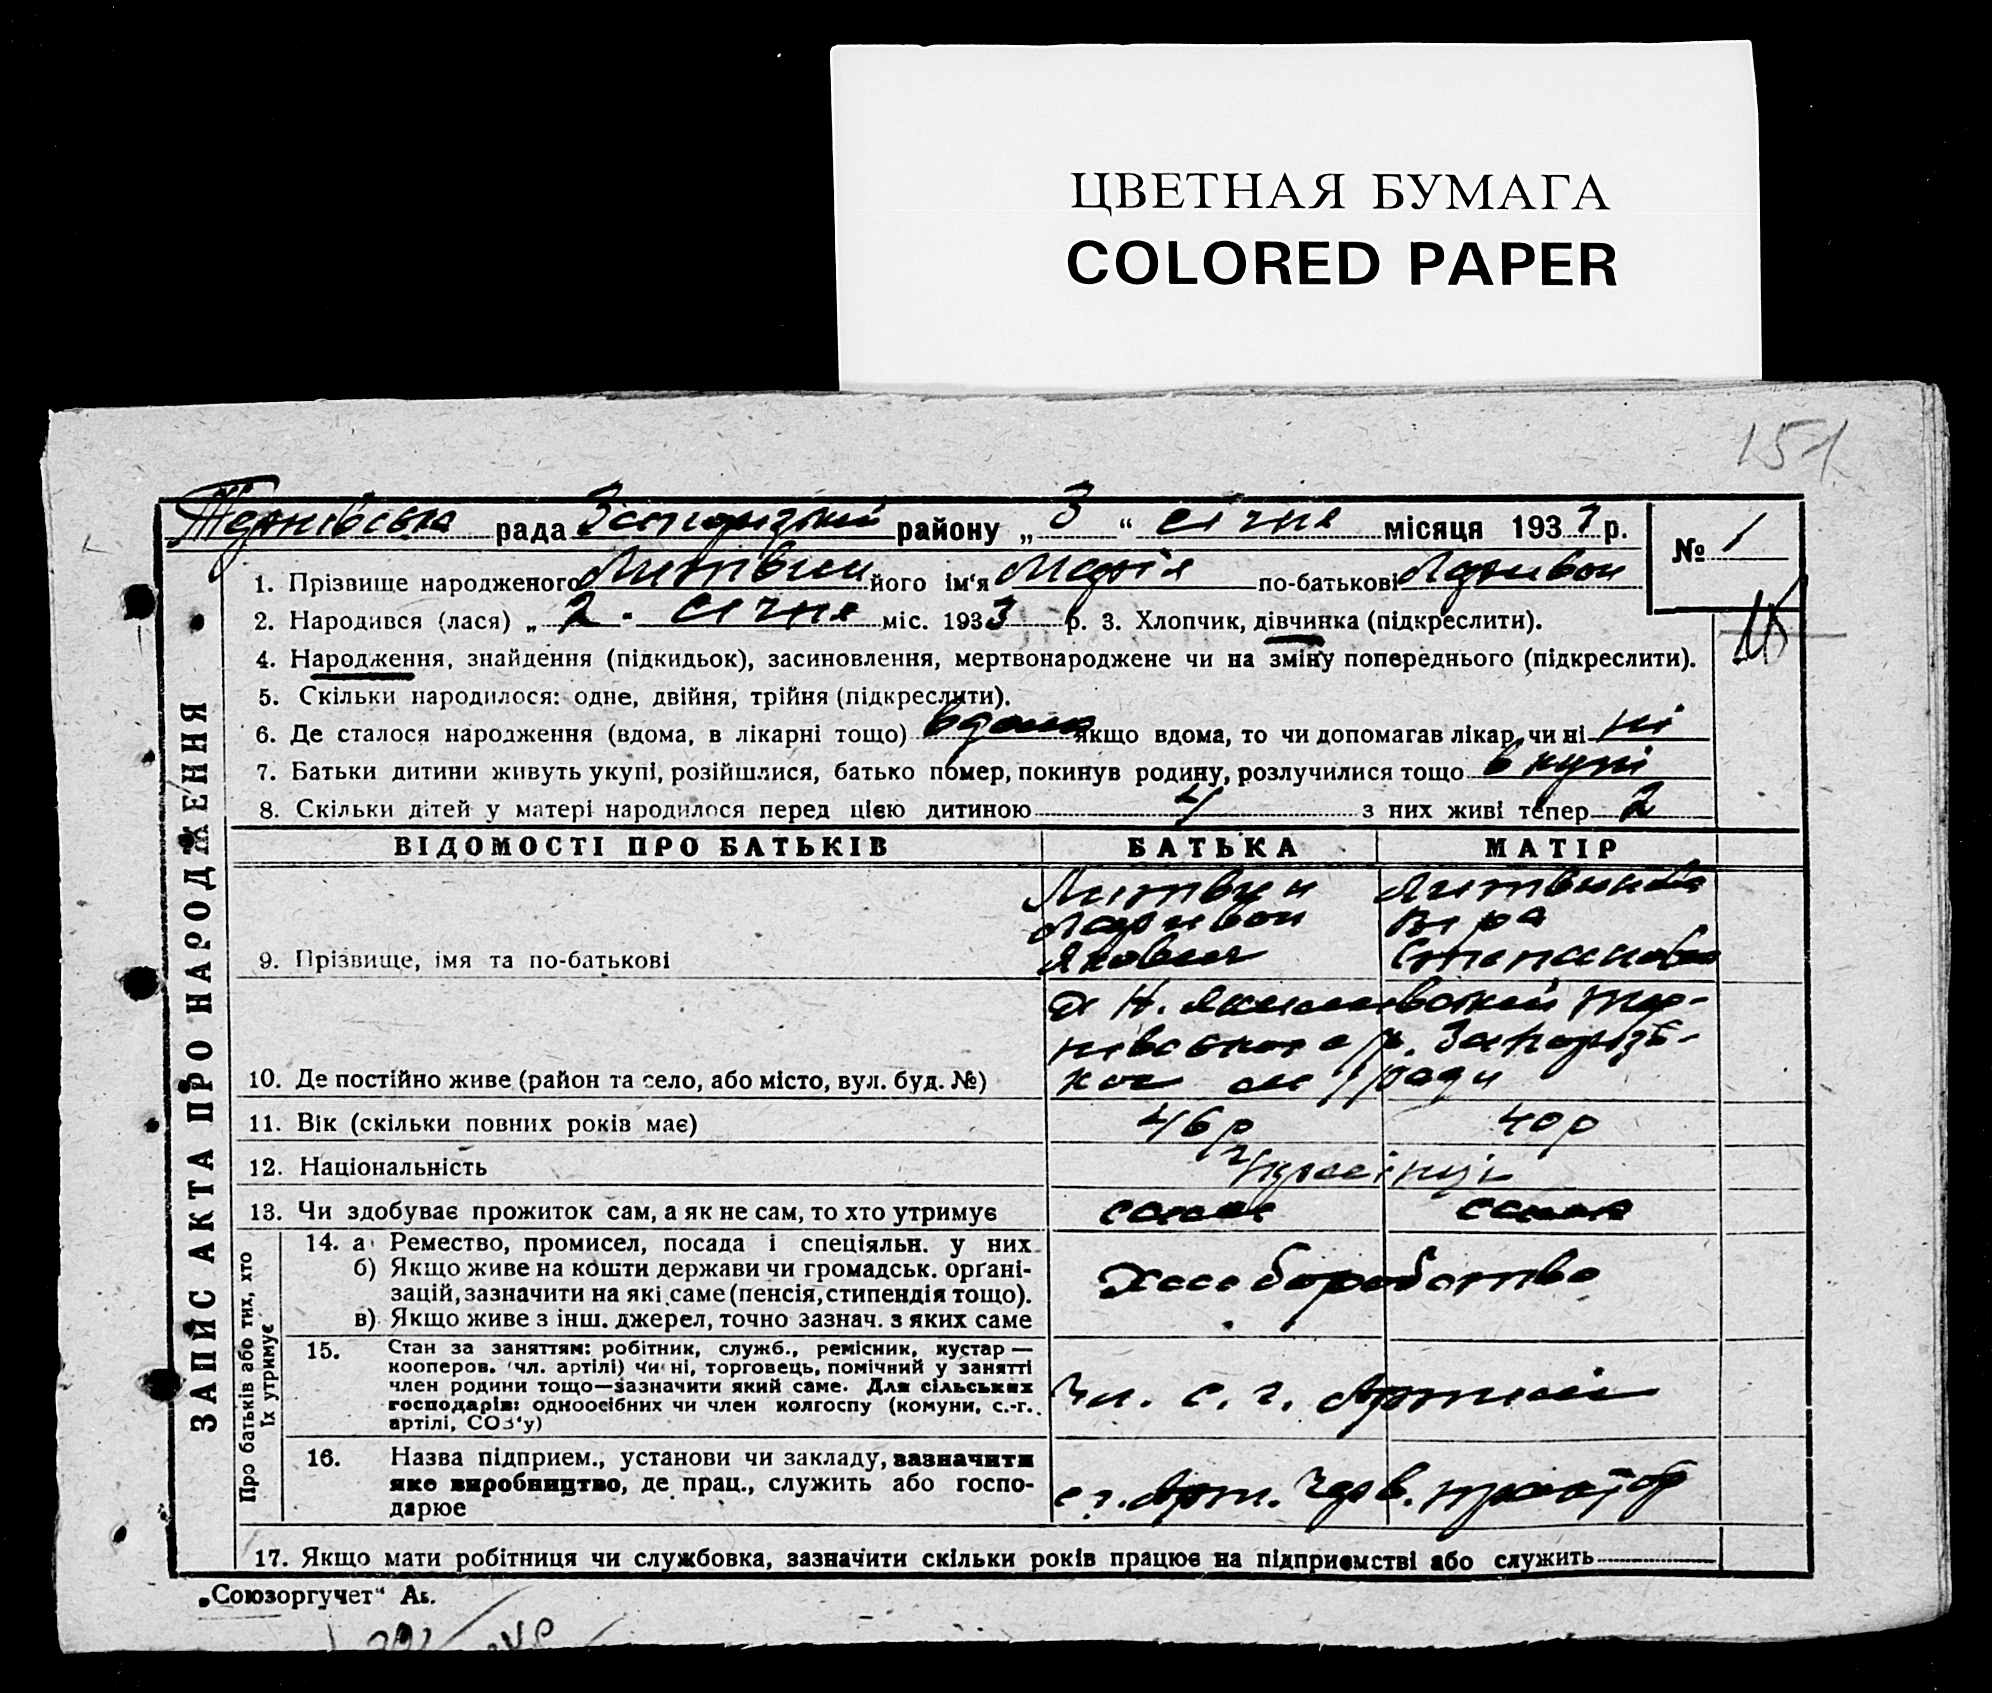 ЦВЕТНАЯ БУМАГА
COLORED PAPER
151
Тернівська рада Запорізький району „ 3 “ січня місяця 1933 р.
№ 1
1. Прізвище народженого Литвин його ім'я Марія по-батькові Ларивон
2. Народився (лася) „ 2 - січня міс. 1933 р. 3. Хлопчик, дівчинка (підкреслити).
4. Народження, знайдення (підкидьок), засиновлення, мертвонароджене чи на зміну попереднього (підкреслити).
5. Скільки народилося: одне, двійня, трійня (підкреслити).
6. Де сталося народження (вдома, в лікарні тощо) вдома якщо вдома, то чи допомагав лікар, чи ні ні
7. Батьки дитини живуть укупі, розійшлися, батько помер, покинув родину, розлучилися тощо в купі
8. Скільки дітей у матері народилося перед цією дитиною 4 з них живі тепер 2
ВІДОМОСТІ ПРО БАТЬКІВ БАТЬКА МАТІР
Литвин
Ларивон
Якович
Литвинова
Віра
Степановна
9. Прізвище, імя та по-батькові
х Н. Якимівській Тер-
нівської с/р. Запорізь-
кої ради
10. Де постійно живе (район та село, або місто, вул. буд. №)
11. Вік (скільки повних років має) 46 р 40 р
12. Національність Українці
13. Чи здобуває прожиток сам, а як не сам, то хто утримує сами сама
14. а) Ремество, промисел, посада і спеціяльн. у них
б) Якщо живе на кошти держави чи громадськ. орґані-
зацій, зазначити на які саме (пенсія, стипендія тощо).
в) Якщо живе з інш. джерел, точно зазнач. з яких саме
Хлеборобство
15. Стан за заняттям: робітник, служб., ремісник, кустар —
кооперов. (чл. артілі) чи ні, торговець, помічний у занятті
член родини тощо—зазначити який саме. Для сільських
господарів: одноосібних чи член колгоспу (комуни, с.-г.
артілі, СОЗ'у)
Чл. с. г. Артилі
16. Назва підприєм., установи чи закладу, зазначити
яке виробництво, де прац., служить або госпо-
дарює
с г. Арт. Черв. трактор
17. Якщо мати робітниця чи службовка, зазначити скільки років працює на підприємстві або служить
ЗАПИС АКТА ПРО НАРОДЖЕННЯ
Про батьків або тих, хто
їх утримує
„Союзоргучет“ Аь.